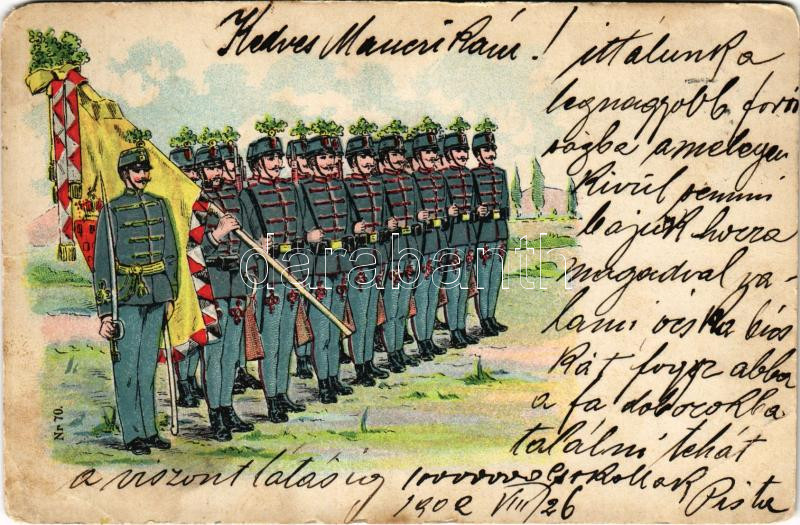 Kedves Mancikám!
ittálunk a
legnagyobb foró
ságba a melegen
Kivül semmi
bajuk hozza
magadval va-
lami ócska
kát fogsz abba
a fa dobozokba
találni tehát
a viszont látásig 1000000 csokollak
1902 VIII/26 Pista
Nr. 70.
darabanth